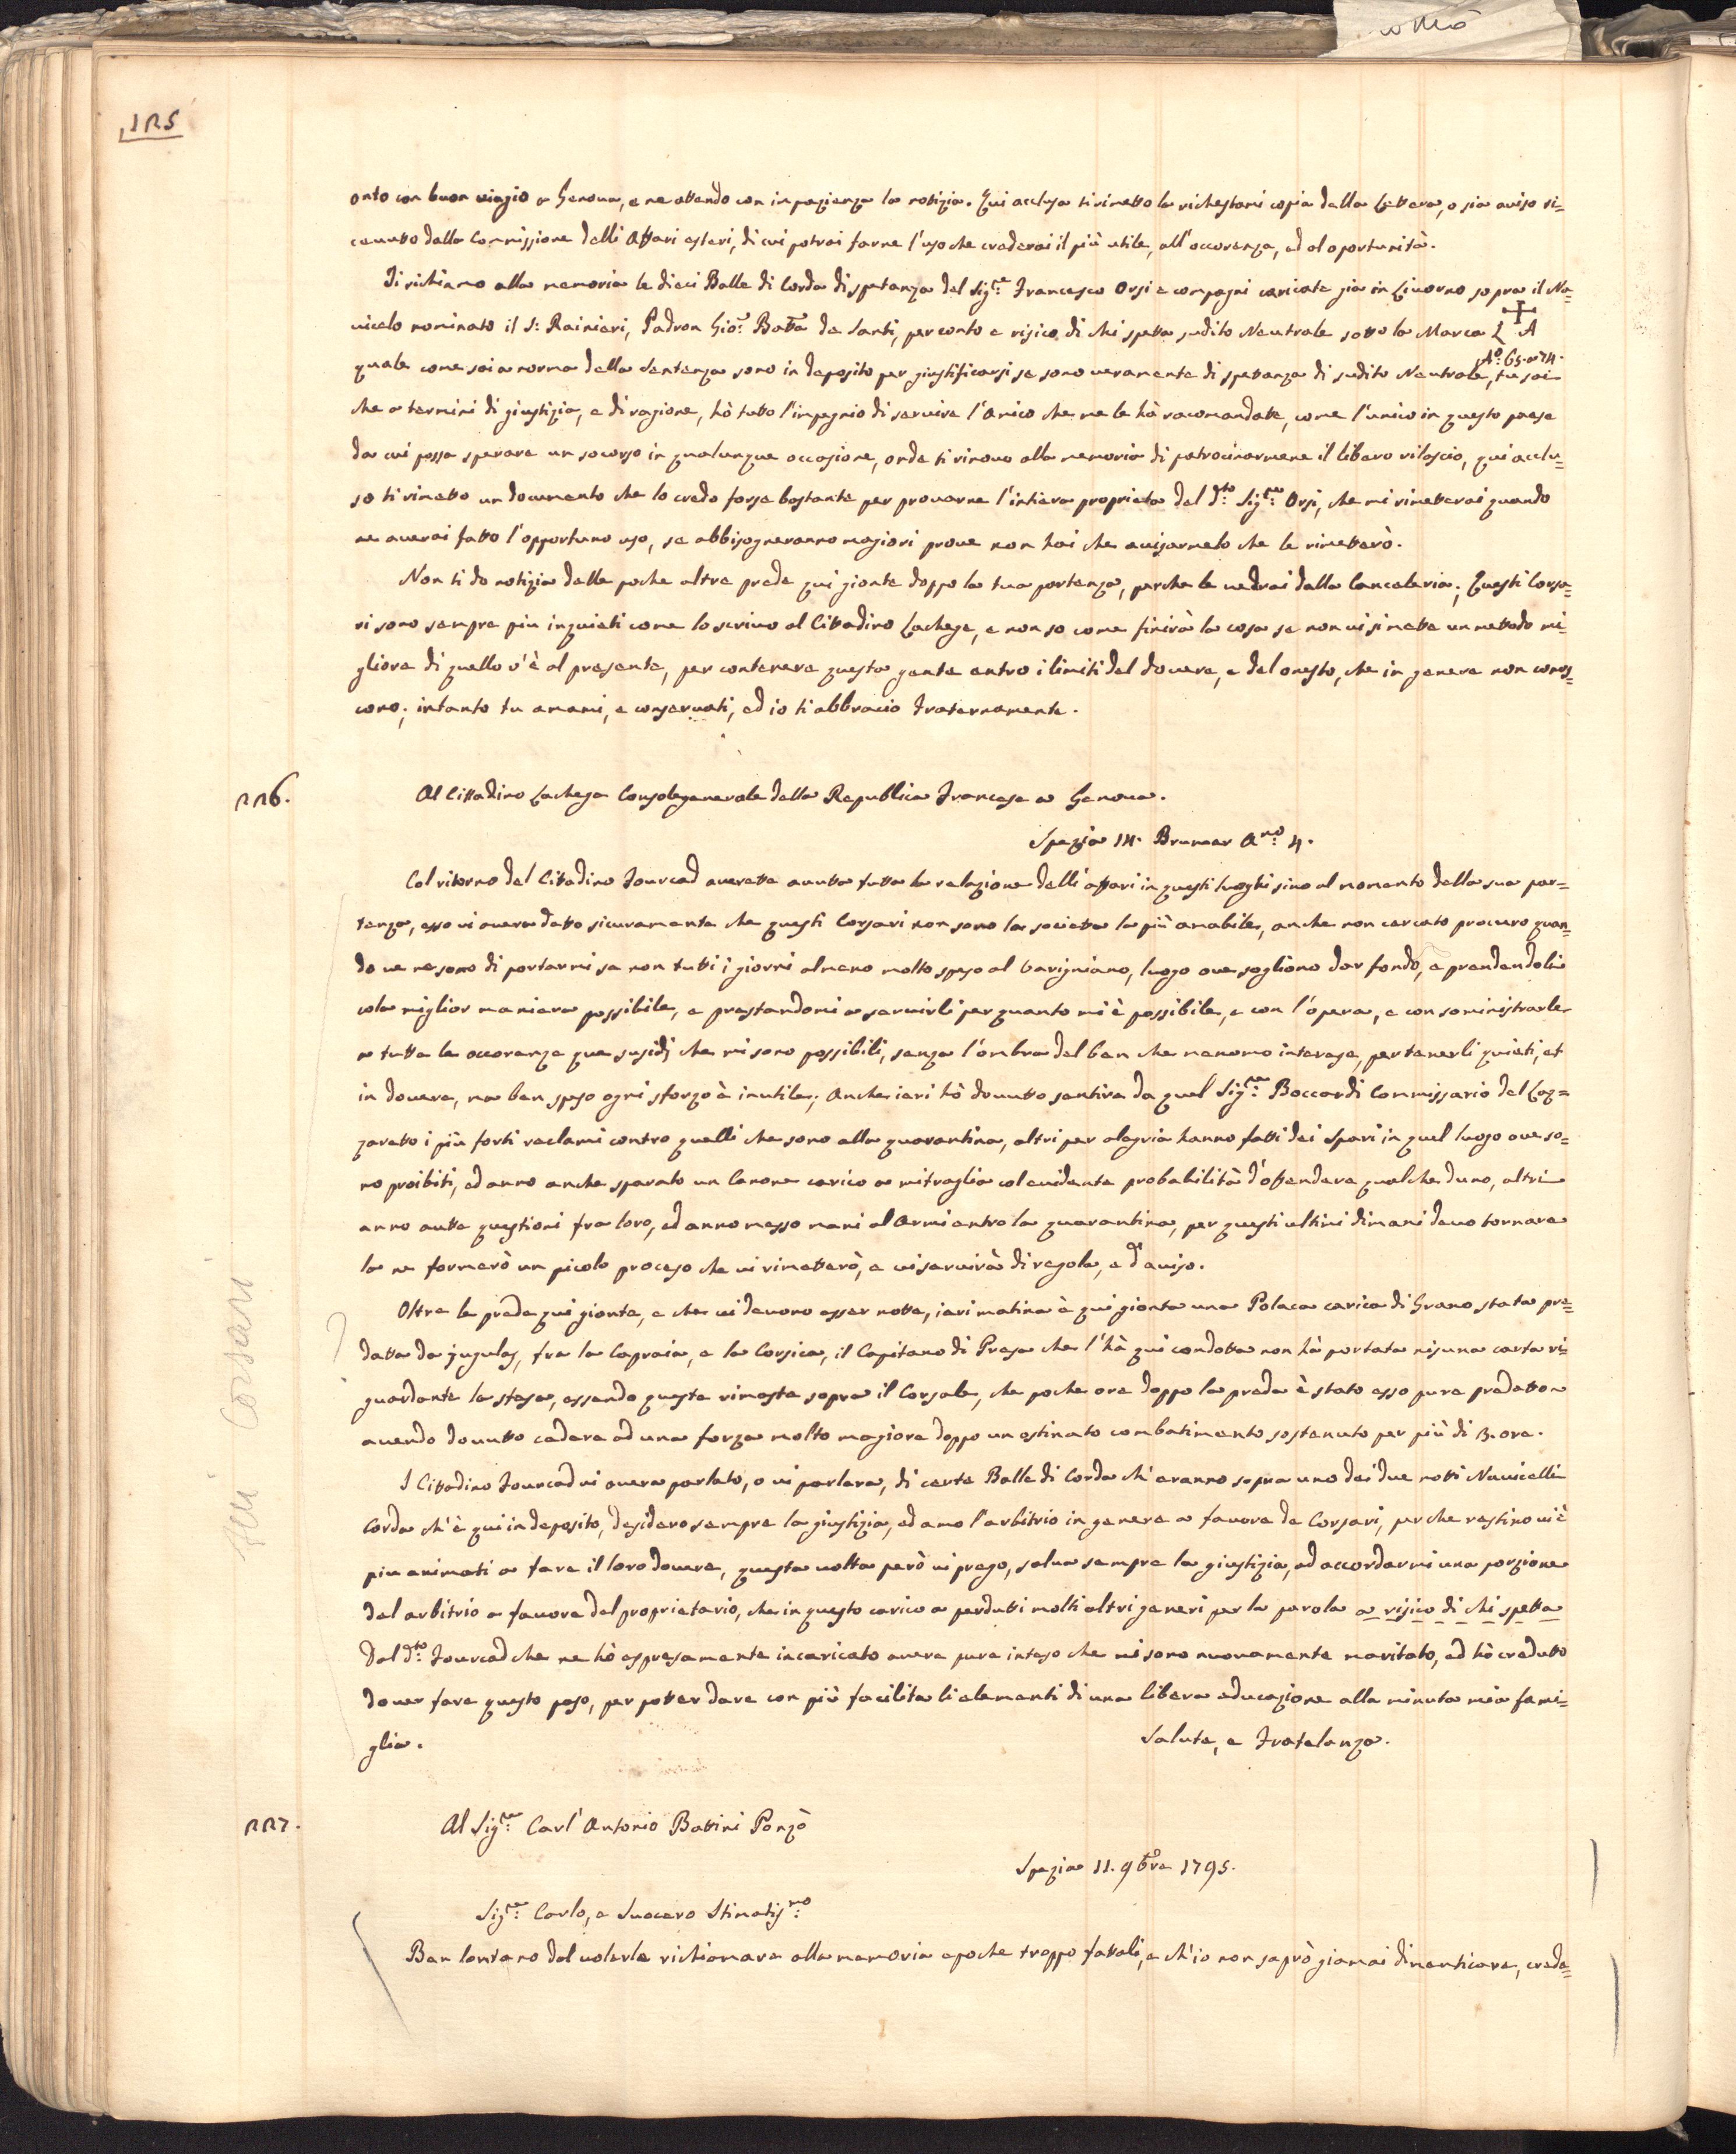 125
onto con buon viagio a Genova, e ne attendo con impazienza la notizia. Qui acclusa ti rimetto la richestami copia della Lettera, o sia aviso ri=
cevutto dalla Commissione delli Affari esteri, di cui potrai farne l'uso che crederai il più utile, all'occorenza, ed al oportunità.
Ti richiamo alla memoria le dieci Balle di Corda di spetanza del Sig:re Francesco Orsi e compagni caricate già in Livorno sopra il Na=
vicelo nominato il S: Rainieri, Padron Gio: Batta de Santi, per conto e risico di chi spetta sudito Neutrale sotto la Marca L A
No: 65. a 74.
quale come sai a norma della Sentenza sono in deposito per giustificarsi se sono veramente di spetanza di sudito Neutrale, tu sai
che a termini di giustizia, e di ragione, hò tutto l'impegnio di servire l'Amico che me le hà racomandate, come l'unico in questo paese
da cui possa sperare un socorso in qualunque occasione, onde ti rinovo alla memoria di patrocinarmene il libero rilascio, qui acclu=
so ti rimetto un documento che lo credo forse bastante per provarne l'intiera proprieta del d:to Sig:re Orsi, che mi rimetterai quando
ne averai fatto l'opportuno uso, se abbisogneranno magiori prove non hai che avisarmelo che le rimetterò.
Non ti do notizia delle poche altre prede qui gionte doppo la tua partenza, perche le vedrai dalla Canceleria; Questi Corsa=
ri sono sempre piu inquieti come lo scrivo al Cittadino Lachese, e non so come finirà la cosa se non vi si mette un mettodo mi=
gliore di quello v'è al presente, per contenere questa gente entro i limiti del dovere, e del onesto, che in genere non conos=
cono; intanto tu amami, e conservati, ed io ti abbracio Fraternamente.
226.
Al Cittadino Lachese Console generale della Republica Francese a Genova.
Spezia 14. Brumer Ano: 4.
Col ritorno del Cittadino Fourcad averette avutta tutta la relazione delli affari in questi luoghi sino al momento della sua par=
tenza, esso vi avera detto sicuramente che questi Corsari non sono la societta la più amabile, anche non cercato procuro quan=
do ve ne sono di portarmi se non tutti i giorni almeno molto speso al Varigniano, luogo ove sogliono dar fondo, e prendendoli
cola miglior maniera possibile, e prestandomi a servirli per quanto mi è possibile, e con l'opera, e con soministrarle
a tutte le occorenze que susidj che mi sono possibili, senza l'ombra del ben che menomo interese, per tenerli quieti, et
in dovere, ma ben speso ogni sforzo è inutile; Anche ieri hò dovutto sentire da quel Sig:re Boccardi Commissario del Laz=
zaretto i più forti reclami contro quelli che sono alla quarantina, altri per alegria hanno fatti dei spari in quel luogo ove so=
no proibiti, ed anno anche sparato un Canone carico a mitraglia col evidente probabilità d'ofendere qualche duno, altri
anno aute questioni fra loro, ed anno messo mani al Armi entro la quarantina, per questi ultimi dimani devo tornare
la ne formerò un picolo proceso che vi rimetterò, e vi servirà di regola, e d'aviso.
Oltre le prede qui gionte, e che vi devono esser notte, ieri matina è qui gionta una Polaca carica di Grano stata pre=
datta da jugulas, fra la Capraia, e la Corsica, il Capitano di Presa che l'hà qui condotta non hà portata nisuna carta ri=
guardante la stesa, essendo queste rimaste sopra il Corsale, che poche ore doppo la preda è stato esso pure predatto
avendo dovutto cedere ad una forza molto magiore doppo un ostinato combatimento sostenuto per più di 3. ore.
I Cittadino Fourcad vi avera parlato, o vi parlera, di certe Balle di Corda ch'eranno sopra uno dei due notti Navicelli
Corda ch'è qui in deposito, desidero sempre la giustizia, ed amo l'arbitrio in genere a favore de Corsari, perche restino vi è
piu animati a fare il loro dovere, questa volta però vi prego, salva sempre la giustizia, ad accordarmi una porzione
del arbitrio a favore del proprietario, che in questo carico a perdutti molti altri generi per la parola a risico di chi spetta
Dal d:to Fourcad che ne hò espresamente incaricato avere pure inteso che mi sono nuovamente maritato, ed hò credutto
dover fare questo paso, per potter dare con più facilita li elementi di una libera educazione alla minuta mia fami=
glia. Salute, e Fratelanza.
227.
Al Sig:re Carl'Antonio Battini Ponzò
Spezia 11. 9bre 1795.
Sig:re Carlo, e Suocero Stimatis:mo
Ben lontano dal volerle richiamare alla memoria epoche troppo fattali, e ch'io non saprò giamai dimenticare, crede=
Corsari